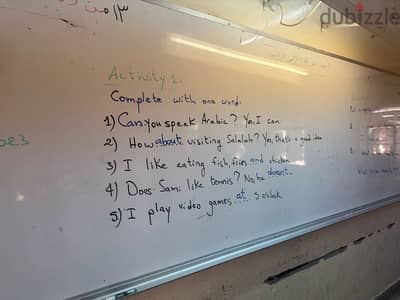 dubizzle
Activity 1:
Complete with one word:
1) Can you speak Arabic? Yes, I can
2) How about visiting Salalah? Yes, that's a good idea
3) I like eating fish, fries and chicken
4) Does Sami like tennis? No, he doesn't.
5) I play video games at 5 o'clock
023